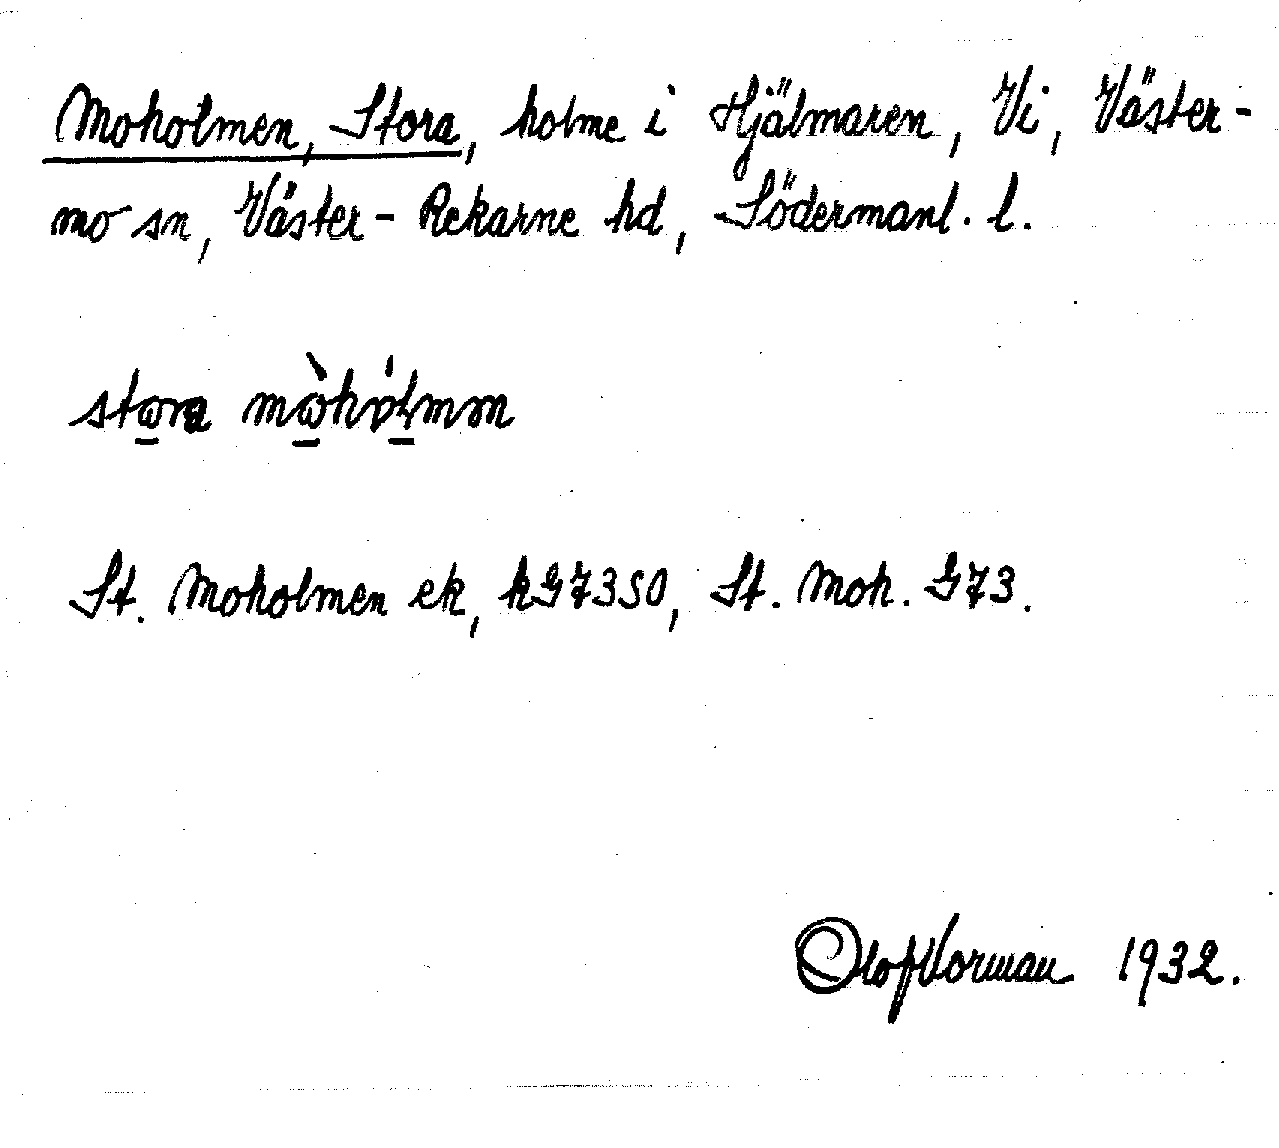 Moholmen, Stora, holme i Hjälmaren, Vi, Väster-
mo sn, Väster-Rekarne hd, Södermanl. l.
stora mòhólmm
St. Moholmen ek, hG7350, St. Moh. G73.
Olof Norman 1932.